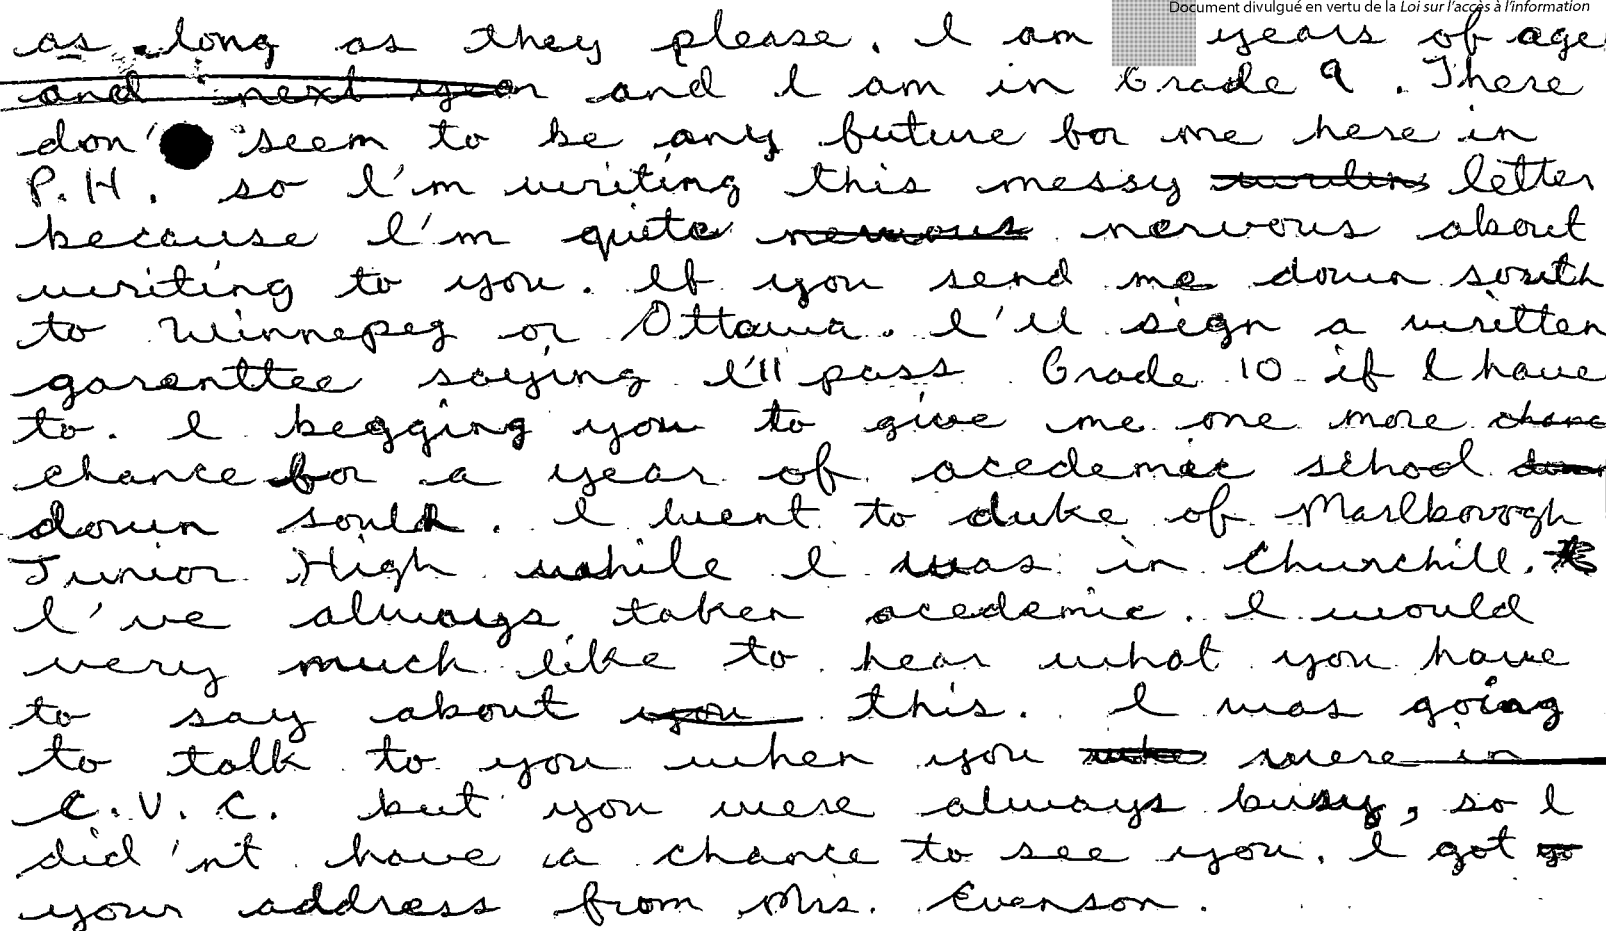 Document divulgué en vertu de la Loi sur l'accès à l'information
as long as they please. I am years of age
and next year and I am in Grade 9. There
don' seem to be any future for me here in
P.H. so I'm writing this messy letter
because I'm quite nervous nervous about
writing to you. If you send me down south
to Winnepeg or Ottawa. I'll sign a written
garenttee saying I'll pass Grade 10 if I have
to. I begging you to give me one more chanc
chance for a year of acedemic school down
down south. I went to duke of Marlborogh
Junior High while I was in Churchill.
I've always taken acedemic. I would
very much like to hear what you have
to say about you this. I was going
to talk to you when you were in
C.V.C. but you were always busy, so I
did'nt have a chance to see you. I got yo
your address from Mrs. Evenson.